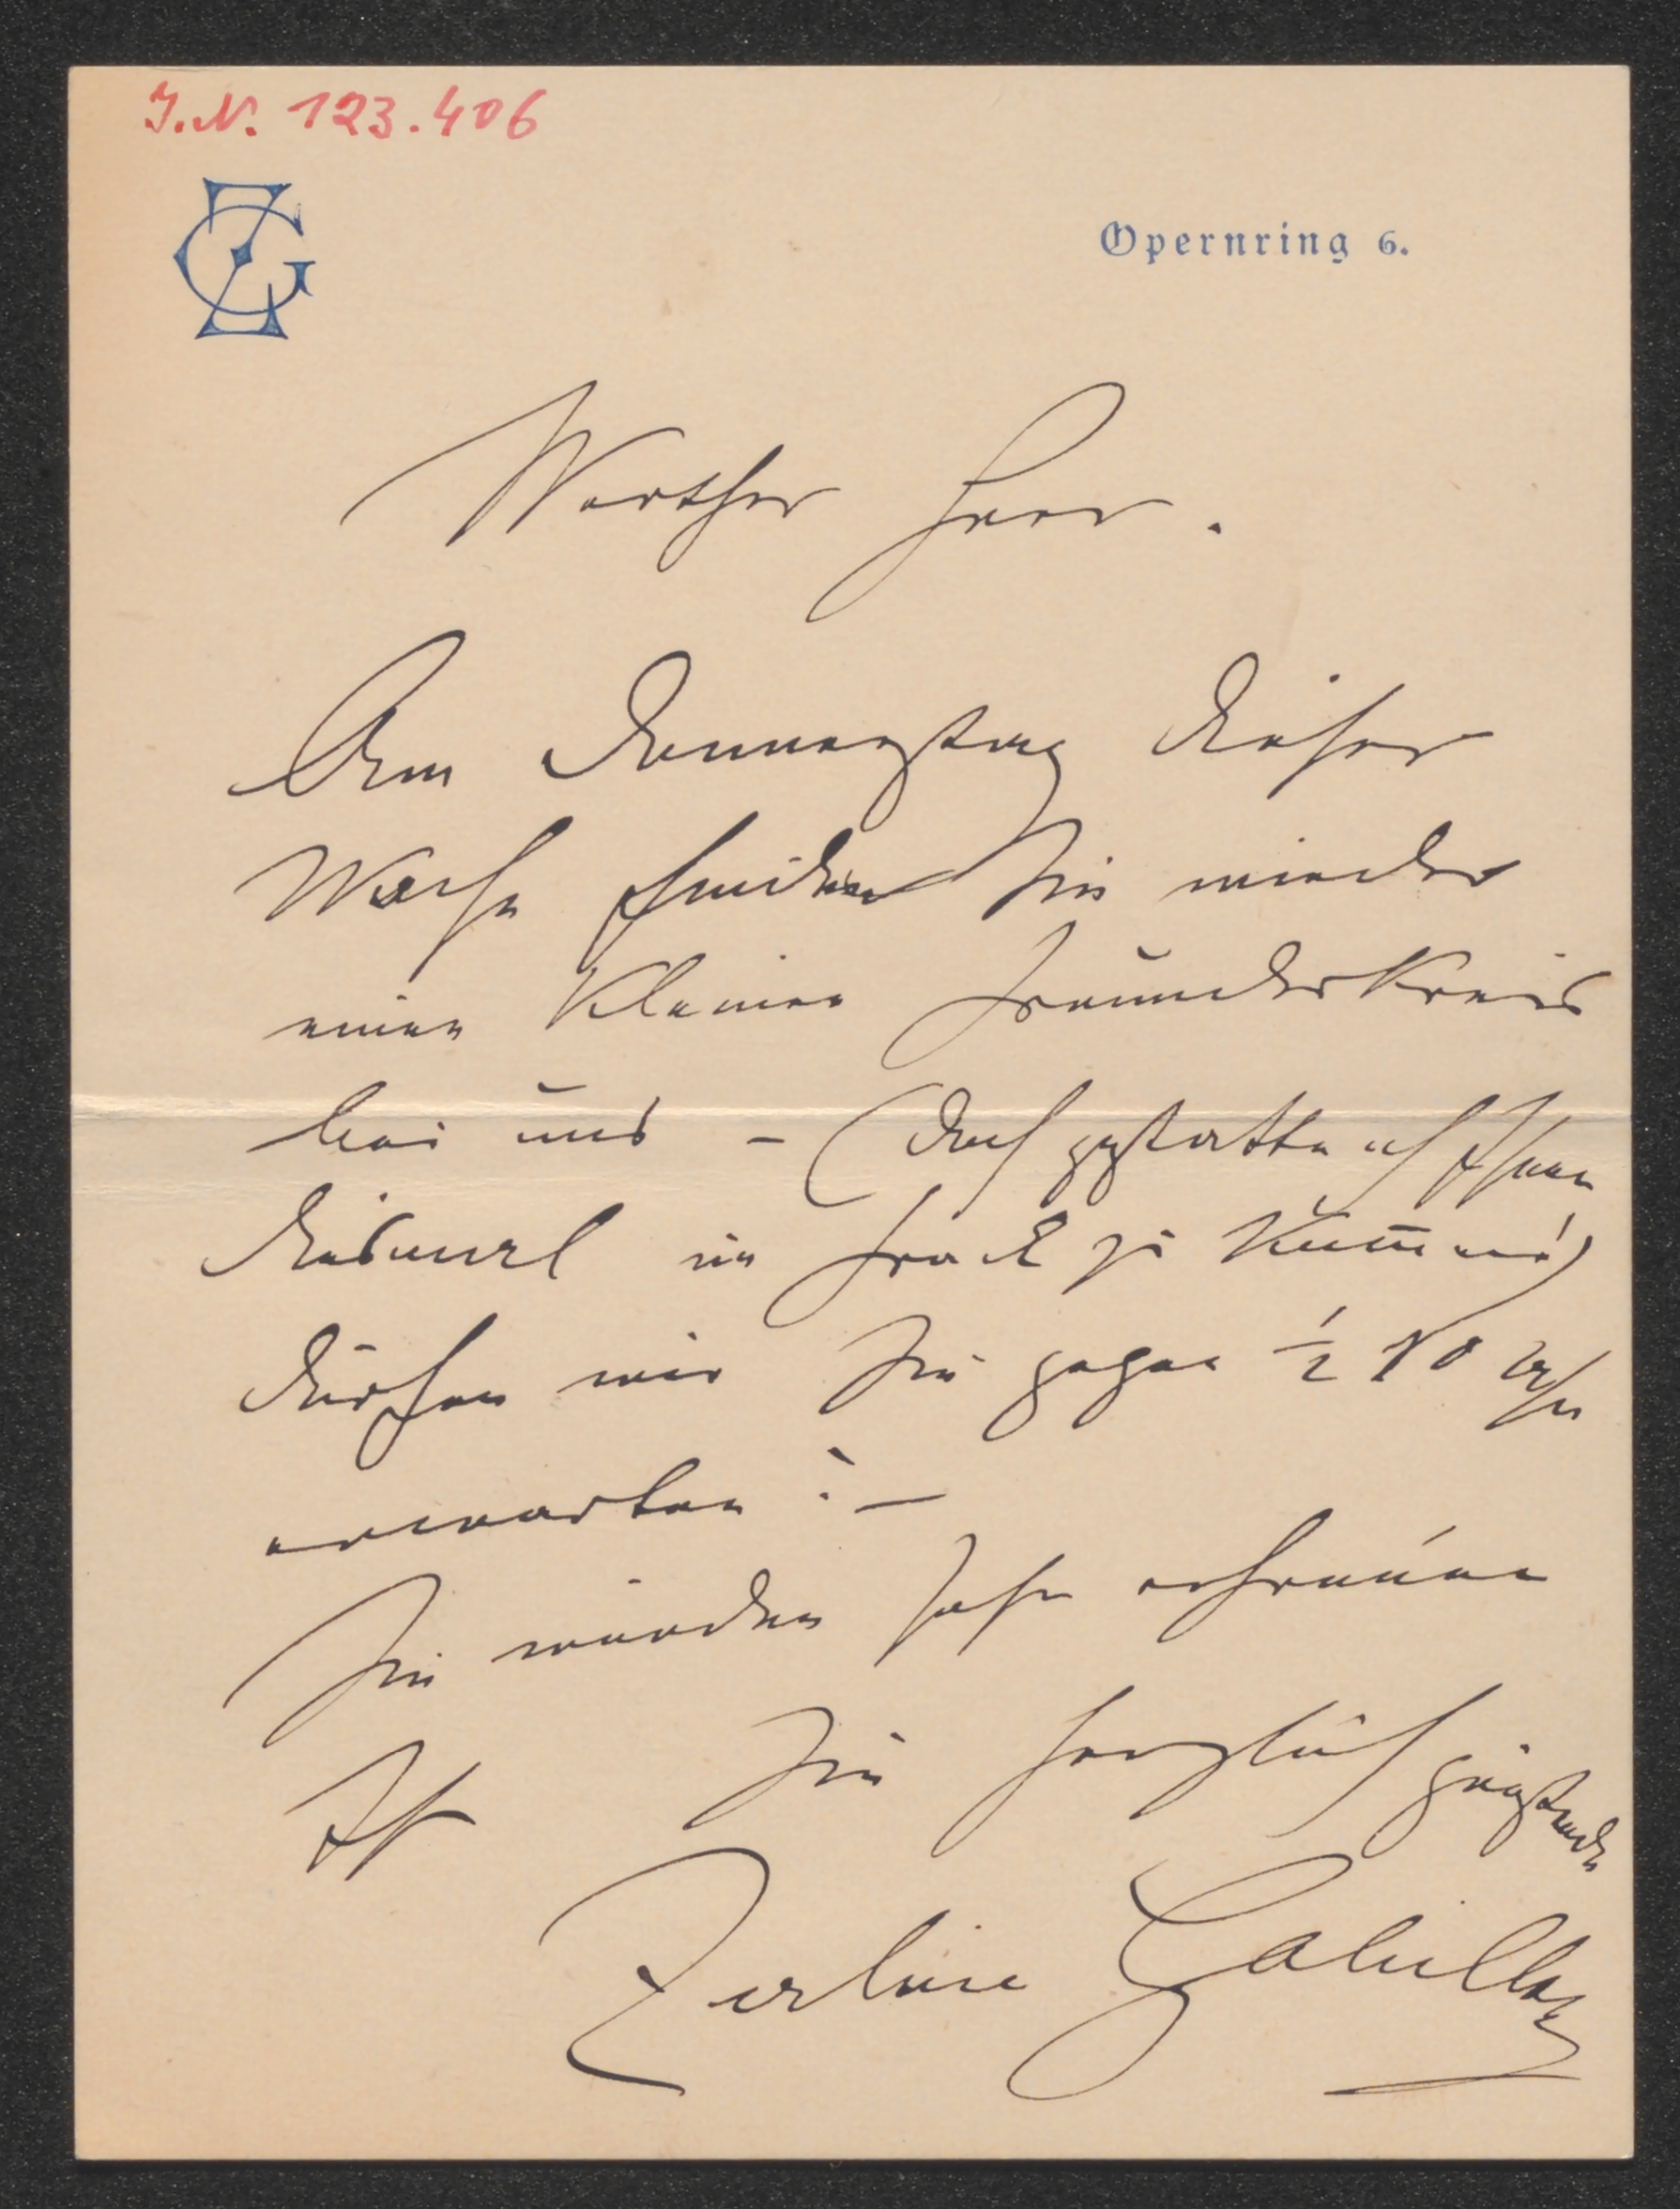 J.N. 123.406
ZG
Opernring 6.
Werther Herr.
Am Donnerstag dieser
Woche finden Sie wieder
einen kleinen Freundeskreis
bei uns – (doch gestatte ich Ihnen
diesmal im Frack zu kom̅en!)
dürfen wir Sie gegen ½ 10 Uhr
erwarten? –
Sie würden sehr erfreuen
Ihre Sie herzlich grüßende
Zerline Gabillon